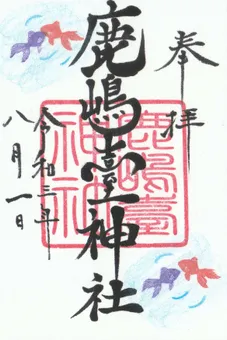 奉拝
鹿嶋臺神社
鹿嶋臺神社
令和三年
八月一日